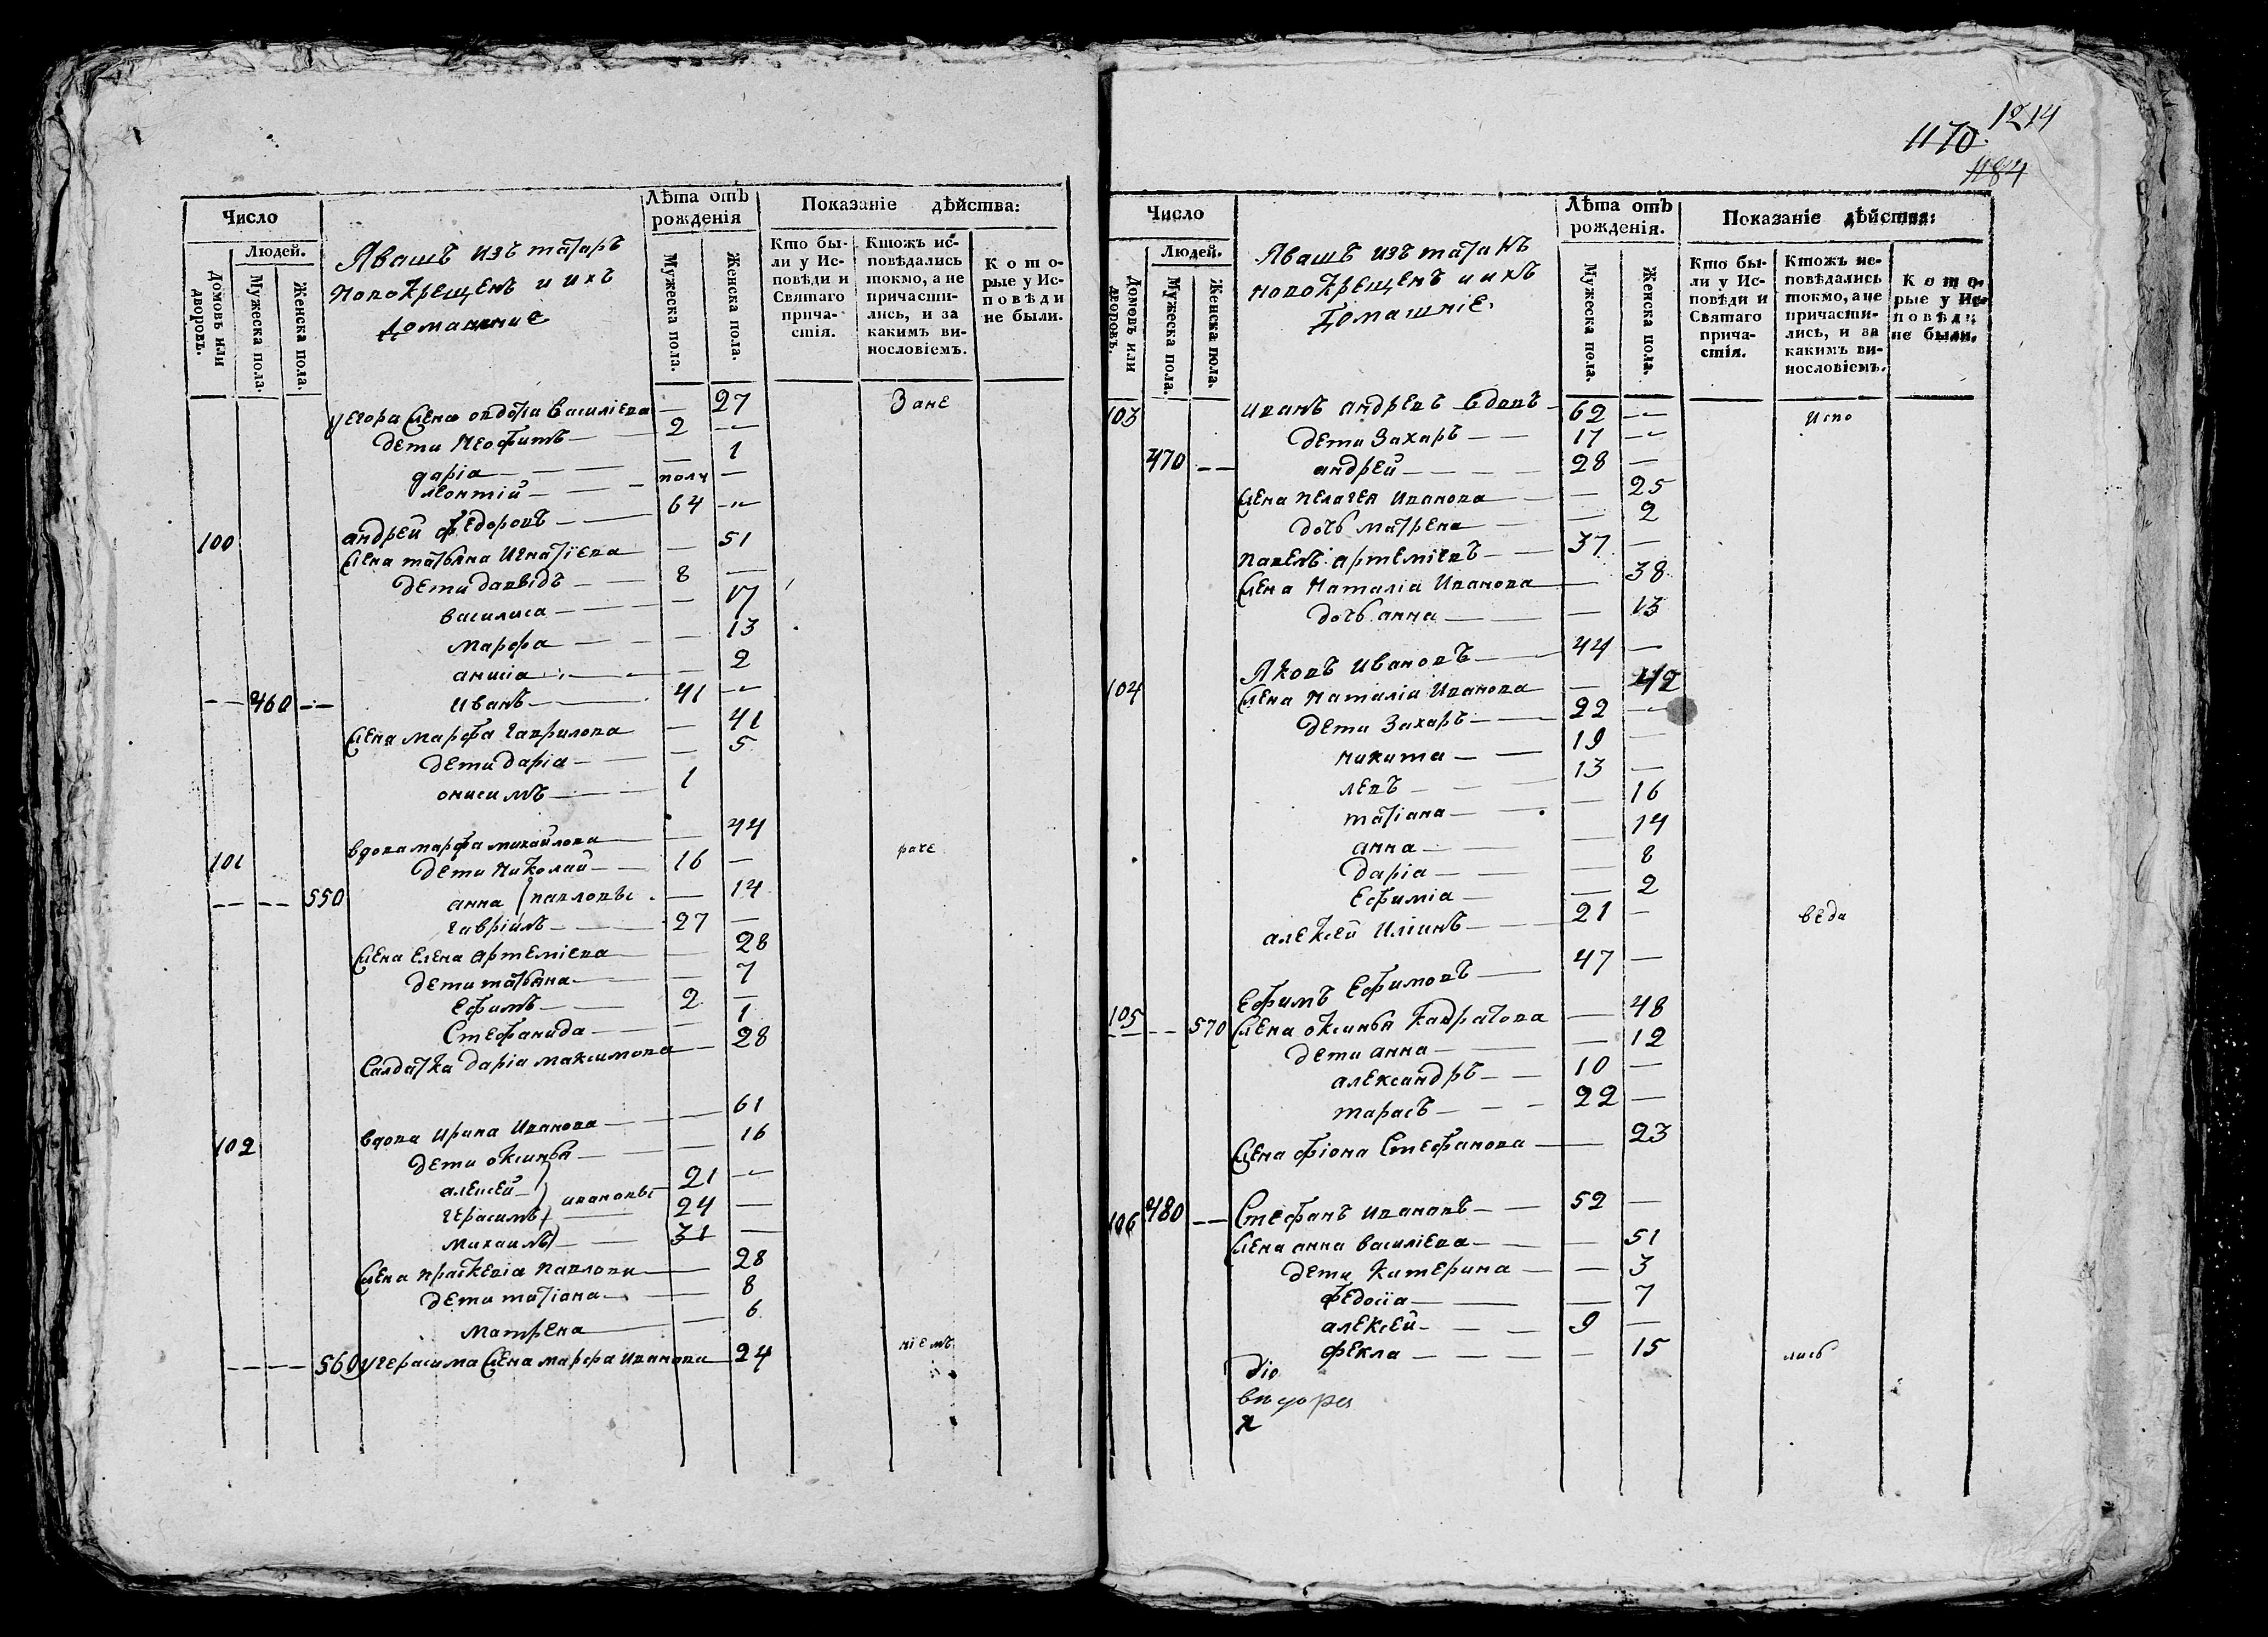 1170 1214
1184
Число
Людей.
Домовъ или дворовъ.
Мужеска пола.
Женска пола.
Явашъ изъ татаръ
новокрещенъ и ихъ
домашние
Лѣта отъ рожденія
Мужеска пола.
Женска пола.
Показаніе дѣйства:
Кто бы-
ли у Ис-
повѣди и
Святаго
прича-
стія.
Ктожъ ис-
повѣдались
токмо, а не
причасти-
лись, и за
какимъ ви-
нословіемъ.
Кото-
рые у Ис-
повѣди
не были.
у Егора жена овдотia василiева — 27 Зане
дети Неофитъ — 2 —
дарiа — — 1
леонтiй — полг —
100 андрей федоровъ — 64 —
жена татьяна игнатiева — 51
дети давидъ — 8 —
василиса — — 17
марфа — — 13
анисiа — — 2
— 460 — иванъ — 41 —
жена марфа гаврилова — 41
дети дарiа — — 5
онисимъ — 1
101 вдова марфа михайлова — 44 раче
дети николай — 16 —
— — 550 анна } павловы — 14
гаврiилъ — 27 —
жена елена артемiева — 28
дети татьяна — — 7
ефимъ — 2 —
Стефанида — — 1
Салдатка дарiа максимова — 28
102 вдова ирина иванова — 61
дети оксинья — — 16
алексей — } ивановы 21 —
герасимъ 24 —
михаилъ — 31 —
жена праскевiа павлова — 28
дети татiана — — 8
матрена — — 6
— — 560 у герасима жена марфа иванова — 24 нiемъ
Число
Людей.
Домовъ или дворовъ.
Мужеска пола.
Женска пола.
Явашъ изъ татаръ
новокрещенъ и ихъ
домашнiе.
Лѣта отъ рожденія.
Мужеска пола.
Женска пола.
Показаніе дѣйства:
Кто бы-
ли у Ис-
повѣди и
Святаго
прича-
стія.
Ктожъ ис-
повѣдались
токмо, а не
причасти-
лись, и за
какимъ ви-
нословіемъ.
Кото-
рые у Ис-
повѣди
не были.
103 иванъ андреевъ вдовъ — 62 — Испо
дети захаръ — 17 —
470 — андрей — 28 —
жена пелагея иванова — 25
дочь матрена — 2
павелъ артемiевъ — 37 —
жена наталiа иванова — 38
дочь анна — 13
104 Яковъ ивановъ — 44 —
жена наталiа иванова — 42
дети захаръ — 22 —
никита — 19 —
левъ — 13 —
татiана — 16
анна — 14
дарiа — 8
ефимiа — 2
алексей илiинъ — 21 — веда
105 ефимъ ефимовъ — 47 —
— 570 жена оксинья кавратова — 48
дети анна — 12
александръ — 10 —
тарасъ — 22 —
жена фiона стефанова — 23
106 480 — Стефанъ ивановъ — 52 —
жена анна василiева — 51
дети катерина — 3
федосiа — 7
алексей — 9 —
фекла — 15 лись